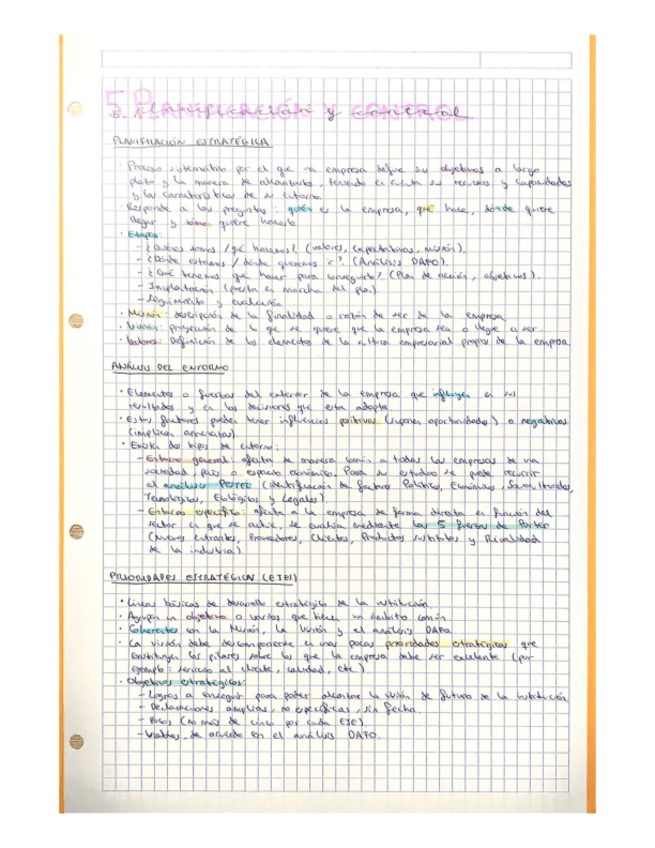 5. Planificación y control
PLANIFICACIÓN ESTRATÉGICA
· Proceso sistemático por el que una empresa define sus objetivos a largo
plazo y la manera de alcanzarlos, teniendo en cuenta sus recursos y capacidades
y las características de su entorno.
· Responde a las preguntas: quién es la empresa, qué hace, dónde quiere
llegar y cómo quiere hacerlo.
· Etapas:
- ¿Quiénes somos / qué hacemos? (valores, expectativas, misión).
- ¿Dónde estamos / dónde queremos ir? (Análisis DAFO).
- ¿Qué tenemos que hacer para conseguirlo? (Plan de acción, objetivos).
- Implantación (puesta en marcha del plan)
- Seguimiento y evaluación
· Misión: descripción de la finalidad o razón de ser de la empresa
· Visión: proyección de lo que se quiere que la empresa sea o llegue a ser.
· Valores: Definición de los elementos de la cultura empresarial propios de la empresa.
ANÁLISIS DEL ENTORNO
· Elementos o fuerzas del exterior de la empresa que influyen en sus
resultados y en las decisiones que esta adopta.
· Estos factores pueden tener influencias positivas (suponen oportunidades) o negativas
(implican amenazas).
· Existen dos tipos de entorno:
- Entorno general: afecta de manera común a todas las empresas de una
sociedad, país o espacio económico. Para su estudio se puede recurrir
al análisis PESTEL (identificación de factores Políticos, Económicos, Socioculturales,
Tecnológicos, Ecológicos y Legales).
- Entorno específico: afecta a la empresa de forma directa en función del
sector en que se actúe, se evalúa mediante las 5 fuerzas de Porter
(Nuevos entrantes, Proveedores, Clientes, Productos sustitutos y Rivalidad
de la industria).
PRIORIDADES ESTRATÉGICAS (EJES)
· Líneas básicas de desarrollo estratégico de la institución.
· Agrupan un objetivo o varios que tienen un ámbito común
· Coherentes con la Misión, la Visión y el análisis DAFO.
· La visión debe descomponerse en unas pocas prioridades estratégicas que
constituyen los pilares sobre los que la empresa debe ser excelente (por
ejemplo: servicio al cliente, calidad, etc)
· Objetivos estratégicos:
- Logros a conseguir para poder alcanzar la visión de futuro de la institución.
- Declaraciones amplias, no específicas, sin fecha
- Pocos (no más de cinco por cada EJE).
- Viables, de acuerdo con el análisis DAFO.